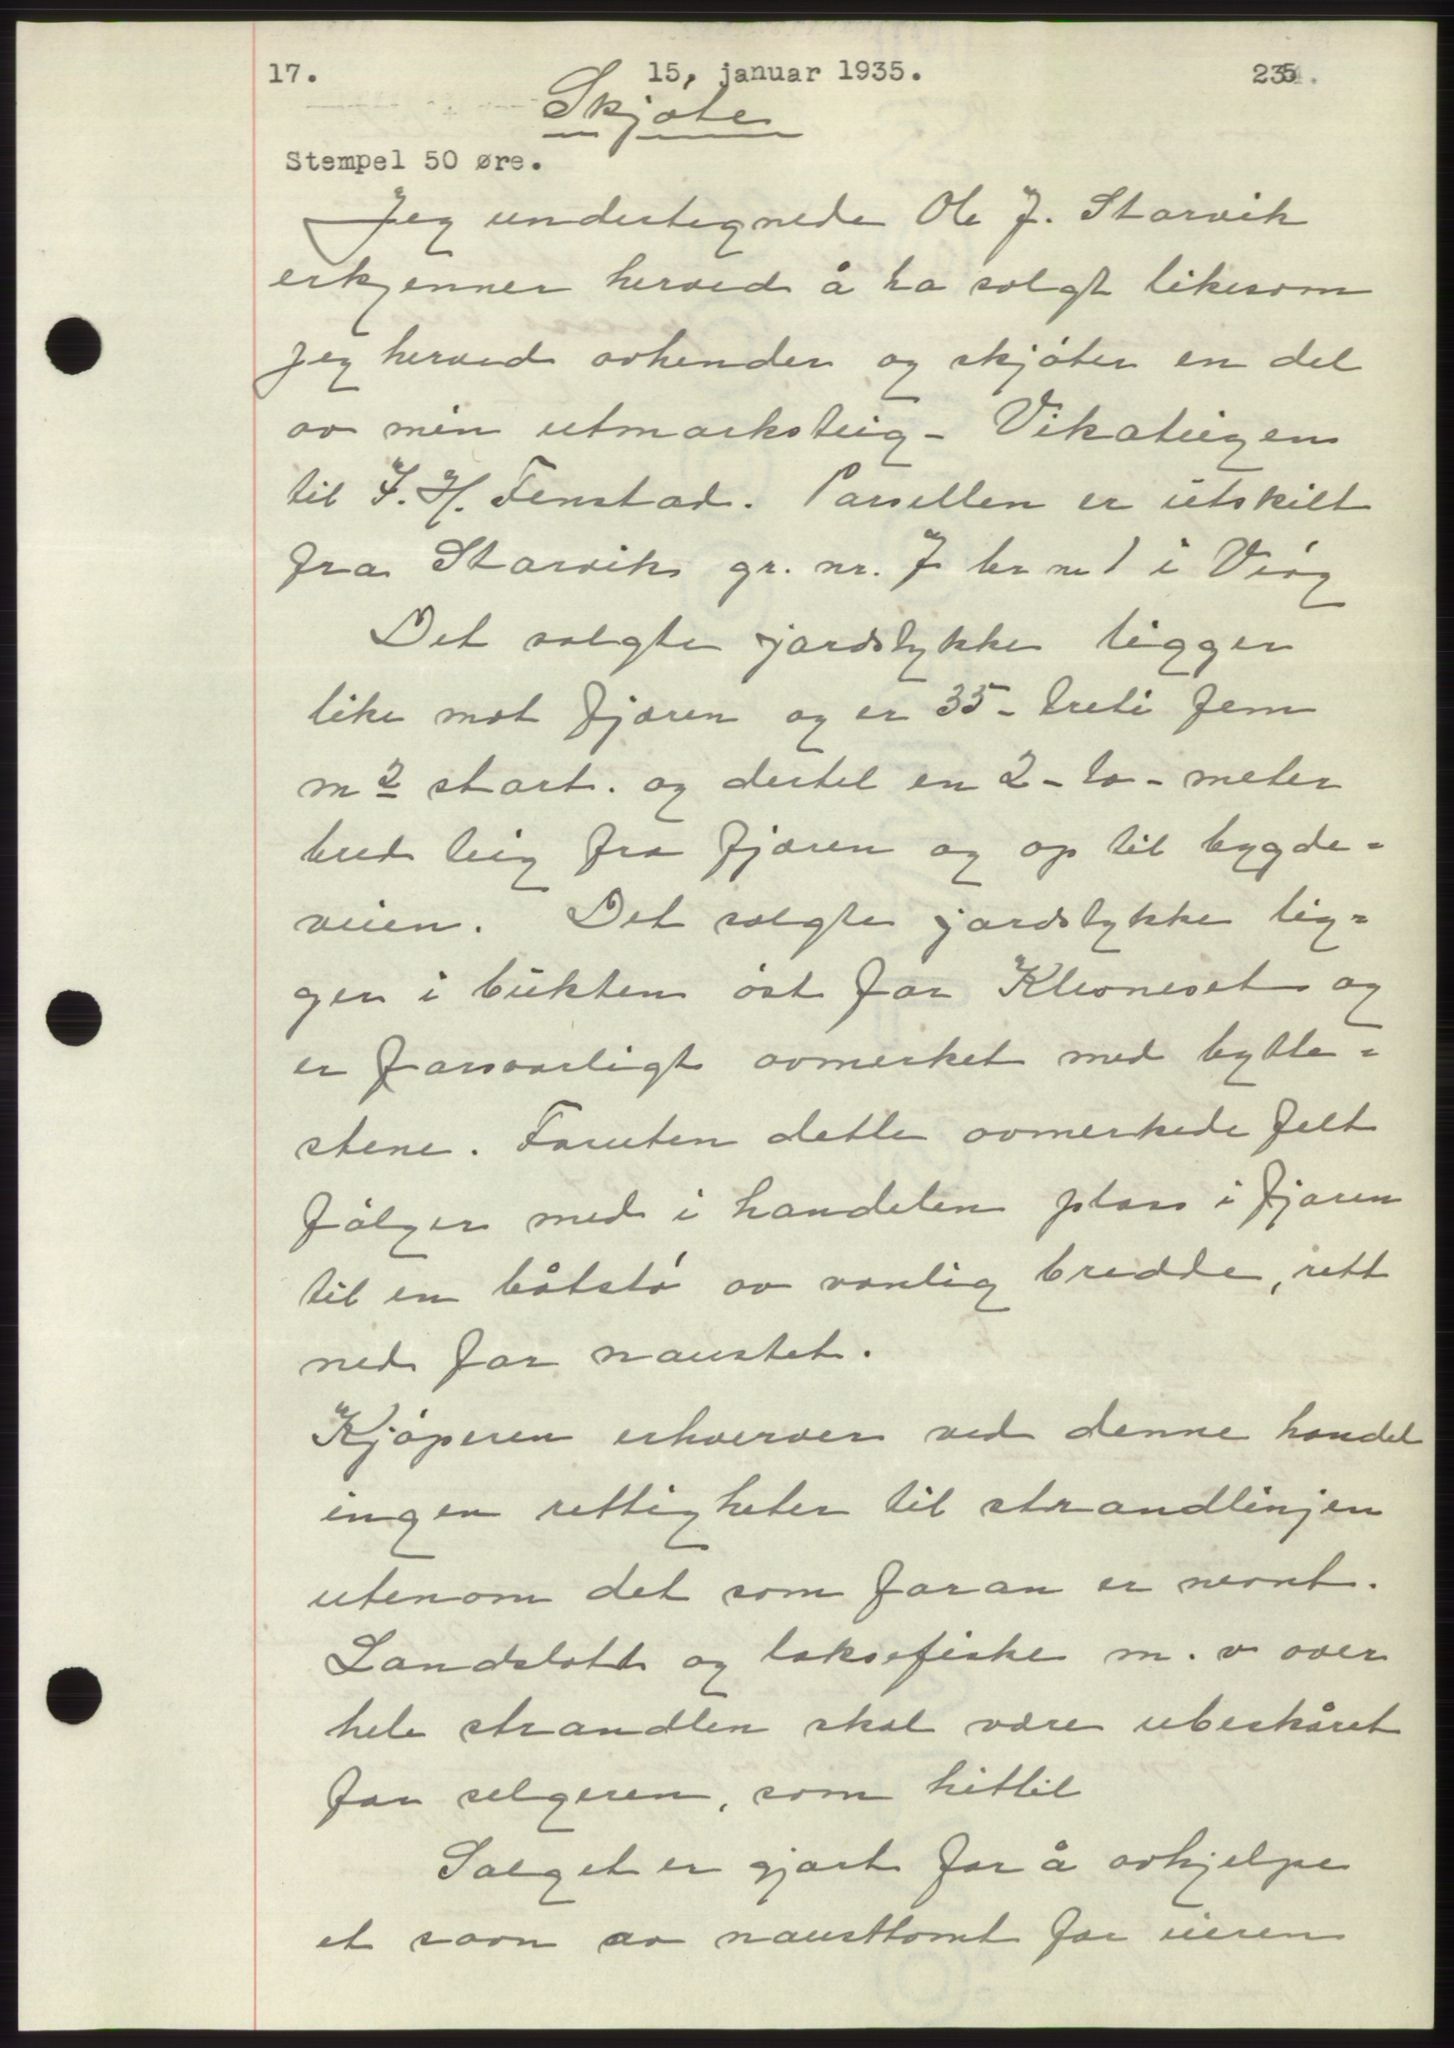 17. 15, januar 1935. 235
Skjøte
Stempel 50 øre.
Jeg undertegnede Ole J. Storvik
erkjenner herved å ha solgt likesom
jeg herved avhender og skjöter en del
av min utmarksteig - Vikateigen
til J. H. Fenstad. Parsellen er utskilt
fra Storvik gr. nr. 7 br nr 1 i
Det solgte jordstykke ligger
like mot fjæren og er 35 - treti fem
m2 stort. og dertil en 2 - to - meter
bred teig fra fjæren og op til bygde=
veien. Det solgte jordstykke lig=
ger i bukten öst for Kleoneset og
er forsvarligt avmerket med bytte=
stene. Foruten dette avmerkede felt
fölger med i handelen plass i fjæren
til en båtstö av vanlig bredde, rett
ned for naustet.
Kjöperen erhverver ved denne handel
ingen rettigheter til strandlinjen
utenom det som foran er nevnt.
Landslott og laksefiske m. v over
hele strandlen skal være ubeskåret
for selgeren, som hittil
Salget er gjort for å avhjelpe
et savn av nausttomt for eieren